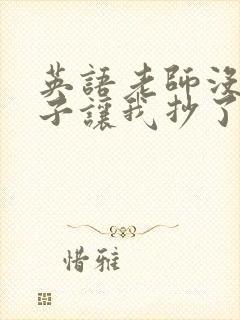 英語老師沒
子讓我抄了
惜雅